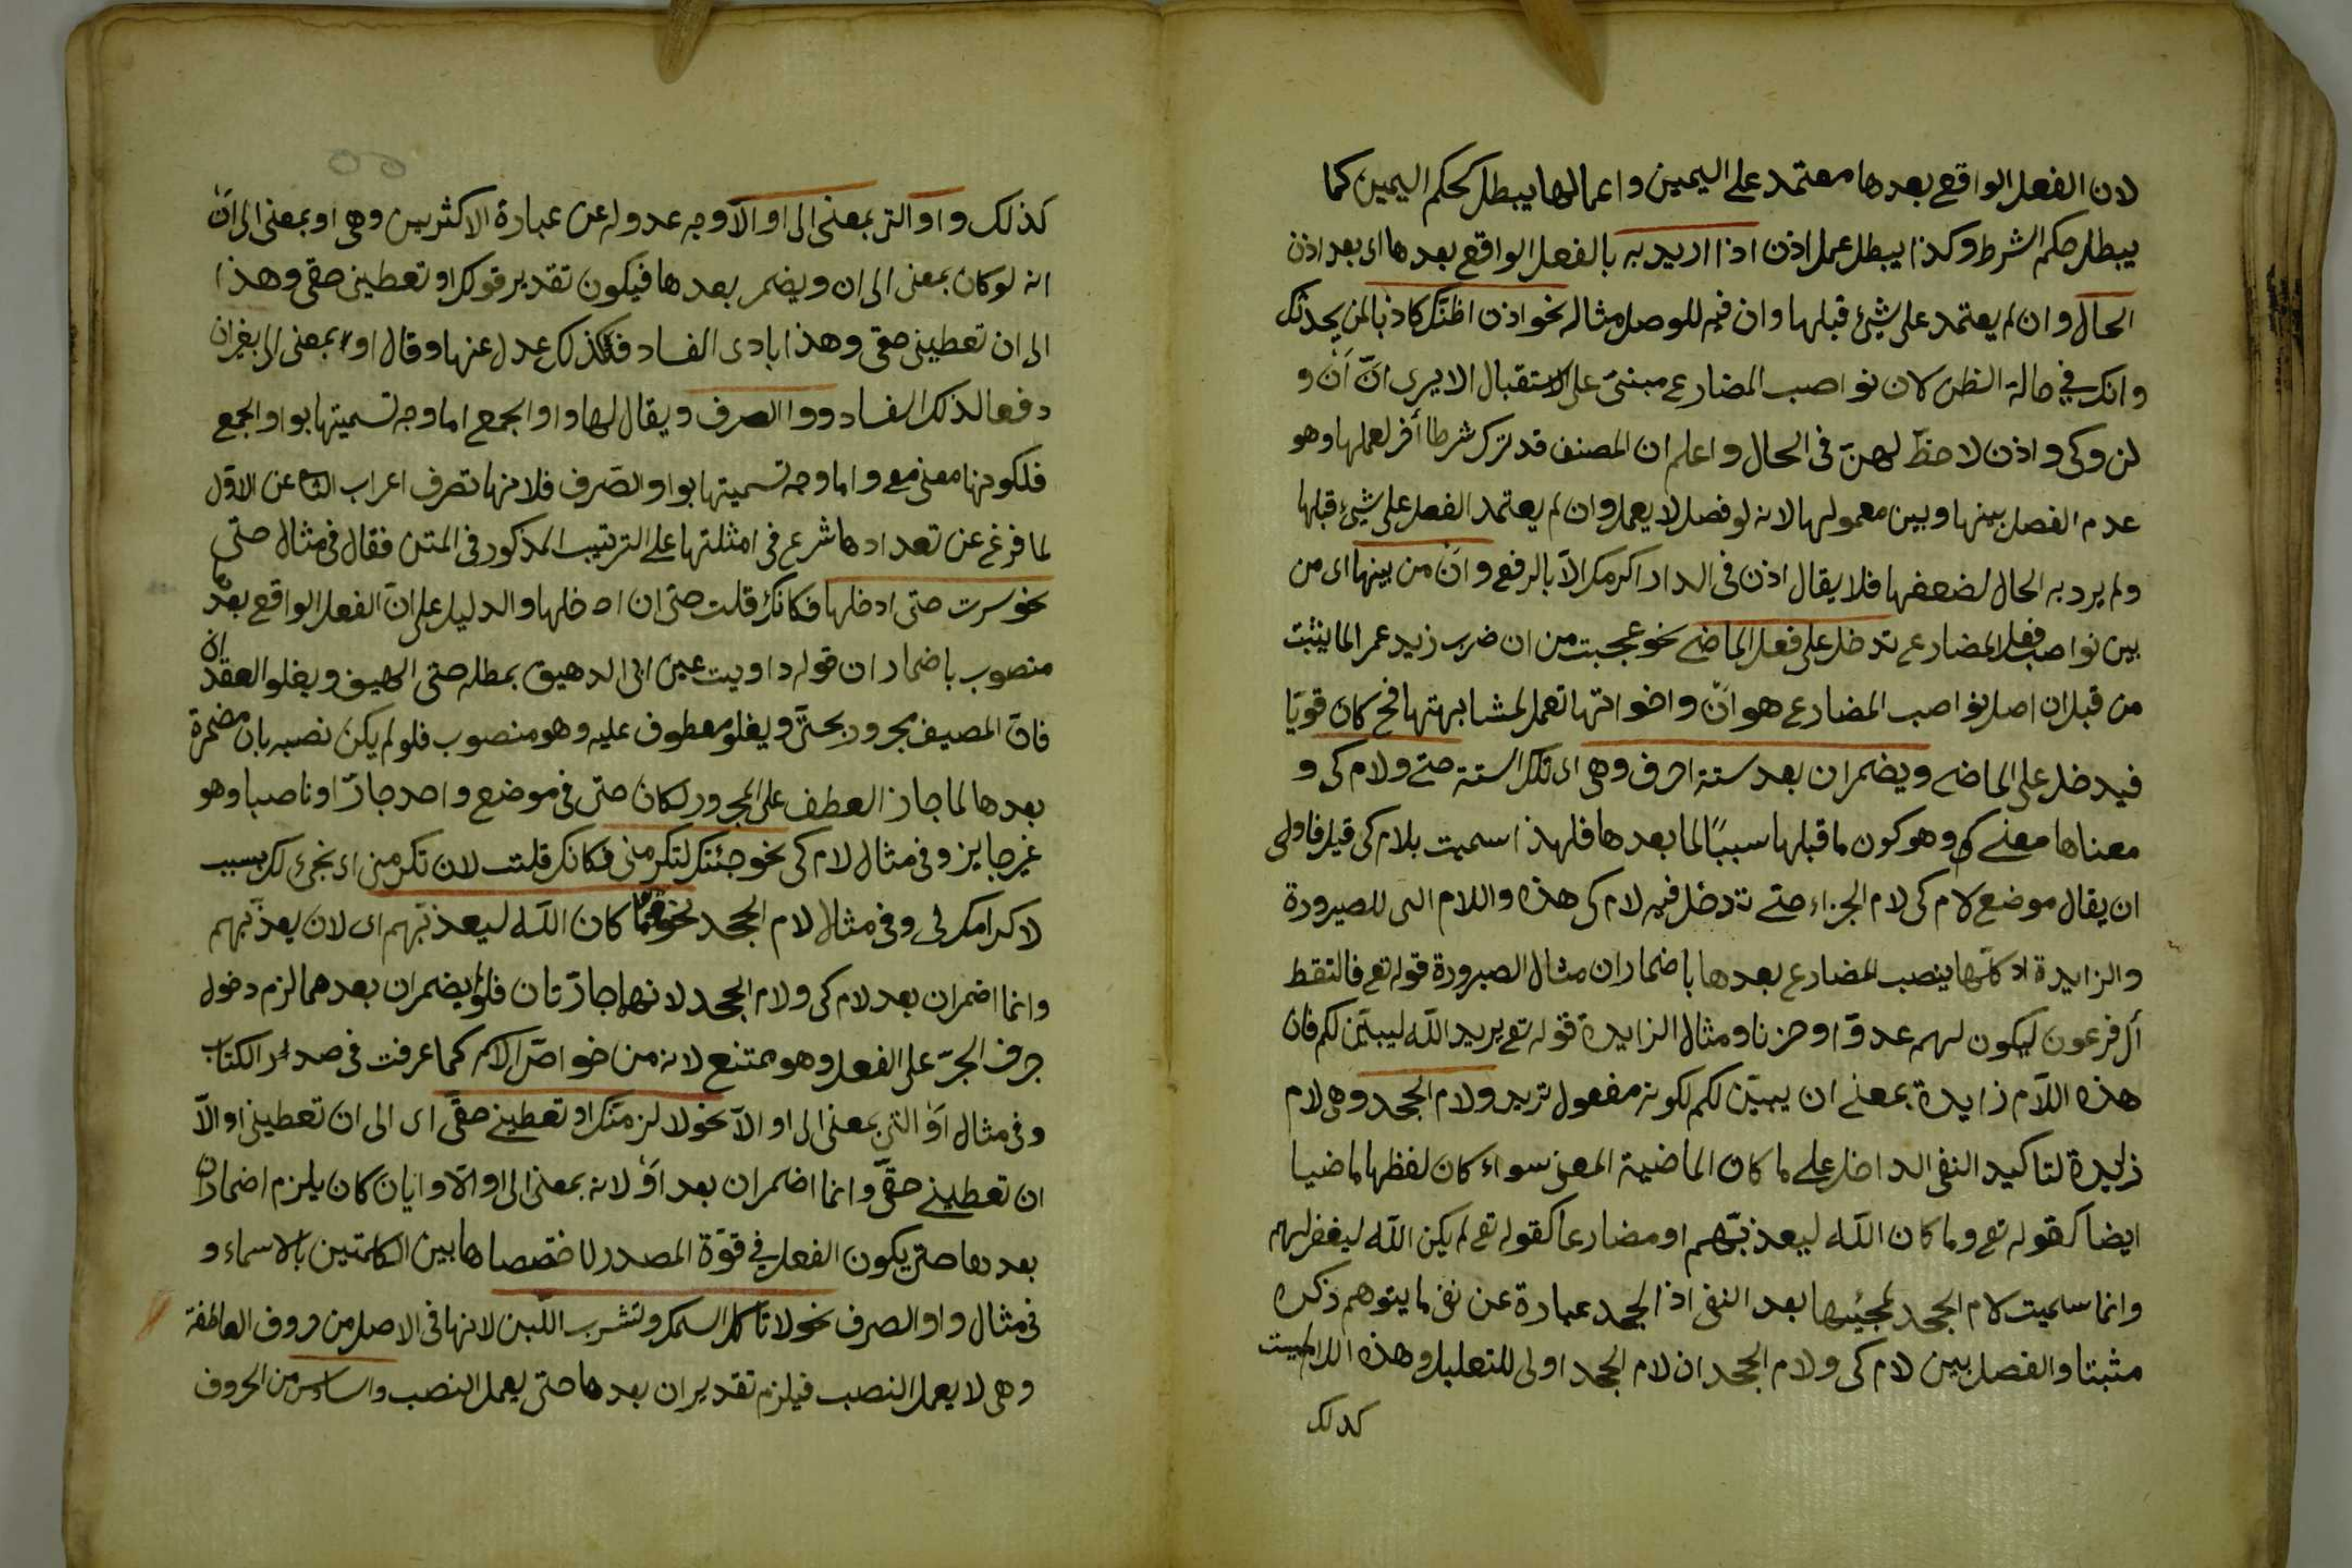 لان الفعل الواقع بعدها معتمد على اليمين واعمالها يبطل حكم اليمين كما
يبطل حكم الشرط وكذا يبطل عمل اذن اذا اريد به بالفعل الواقع بعدها اى بعد اذن
الحال وان لم يعتمد على شيئ قبلها وان فيه للوصل مثاله نحو اذن اظنك كاذبا لمن يحدثك
وانك في حالة الظن لان نواصب المضارع مبنىّ على الاستقبال الا يرى انّ أن و
لن وكى واذن لا حظّ لهنّ فى الحال واعلم ان المصنف قد ترك شرطا أخر لعملها وهو
عدم الفصل بينها وبين معمولها لانه لو فصل لا يعمل وان لم يعتمد الفعل على شيئ قبلها
ولم يرد به الحال لضعفها فلا يقال اذن فى الدار اكرمك الاّ بالرفع وأن من بينها اى من
بين نواصب فعل المضارع تدخل على فعل الماضي نحو عجبت من ان ضرب زيد عمرا لما يثبت
من قبل ان اصل نواصب المضارع هو انّ واخواتها تعمل لمشابهتها فح كان قويّا
فيدخل على الماضي ويضمر ان بعد ستة احرف وهى اى تلك الستة حتى ولام كى و
معناها معنى كى وهو كون ما قبلها سببًا لما بعدها فلهذا سميت بلام كى قيل فاولى
ان يقال موضع لام كى لام الجزاء حتى تدخل فيه لام كى هذه واللام التى للصيرورة
والزايدة اذ كلّها ينصب المضارع بعدها باضمار ان مثال الصيرورة قوله تع فالتقط
أل فرعون ليكون لهم عدوّا وحزنا ومثال الزايدة قوله تع يريد اللّه ليبيّن لكم فان
هذه اللاّم زايدة بمعنى ان يبيّن لكم لكونه مفعول تريد ولام الجحد وهى لام
زايدة لتاكيد النفى الداخل على ما كان الماضية المعنى سواء كان لفظها ماضيا
ايضا كقوله تع وما كان اللّه ليعذبّهم او مضارعا كقوله تع لم يكن اللّه ليغفر لهم
وانما سميت لام الجحد لمجيئها بعد النفى اذ الجحد عبارة عن نفى ما يتوهم ذكره
مثبتا والفصل بين لام كى ولام الجحد ان لام الجحد اولى للتعليل وهذه اللام ليست
كذلك
كذلك واو التى بمعنى الى او الاّ وجه عدوله عن عبارة الاكثرين وهى او بمعنى الى انّ
انه لو كان بمعنى الى ان ويضمر بعدها فيكون تقدير قولك او تعطينى حقى وهذا
الى ان تعطينى حقى وهذا بادى الفساد فلذلك عدل عنها وقال او بمعنى الى بغير ان
دفعا لذلك الفساد وواو الصرف ويقال لها واو الجمع اما وجه تسميتها بواو الجمع
فلكونها معنى مع واما وجه تسميتها بواو الصّرف فلانها تصرف اعراب الثانى عن الاوّل
لما فرغ عن تعدادها شرع فى امثلتها على الترتيب المذكور فى المتن فقال فى مثال حتى
نحو سرت حتى ادخلها فكانك قلت حتى ان ادخلها والدليل على انّ الفعل الواقع بعدها
منصوب باضمار ان قوله داويت عين ابى الدهيق بمطله حتى المصيف ويغلو العقد ان
فانّ المصيف مجرور بحتّى ويغلو معطوف عليه وهو منصوب فلو لم يكن نصبه بان مضمرة
بعدها لما جاز العطف على المجرور لكان حتى فى موضع واحد جارّا او ناصبا وهو
غير جايز وفى مثال لام كى نحو جئتك لتكرمنى فكانك قلت لان تكرمنى اى نجئ لك بسبب
لاكرامك لى وفى مثال لام الجحد نحو ما كان اللّه ليعذبّهم اى لان يعذّبهم
وانما اضمر ان بعد لام كى ولام الجحد لانهما جارّتان فلو لم يضمر ان بعدهما لزم دخول
حرف الجرّ على الفعل وهو ممتنع لانه من خواصّ الاسم كما عرفت فى صدر الكتاب
وفى مثال أو التى بمعنى الى او الاّ نحو لالزمنّك او تعطينى حقّى اى الى ان تعطينى او الاّ
ان تعطينى حقّى وانما اضمر ان بعد أو لانه بمعنى الى او الاّ وايّان كان يلزم اضمار ان
بعدها حتى يكون الفعل في قوّة المصدر لاختصاصها بين الكلمتين بالاسماء و
فى مثال واو الصرف نحو لا تاكل السمك وتشرب اللبن لانها فى الاصل من حروف العاطفة
وهى لا يعمل النصب فيلزم تقدير ان بعدها حتى يعمل النصب والسادس من الحروف